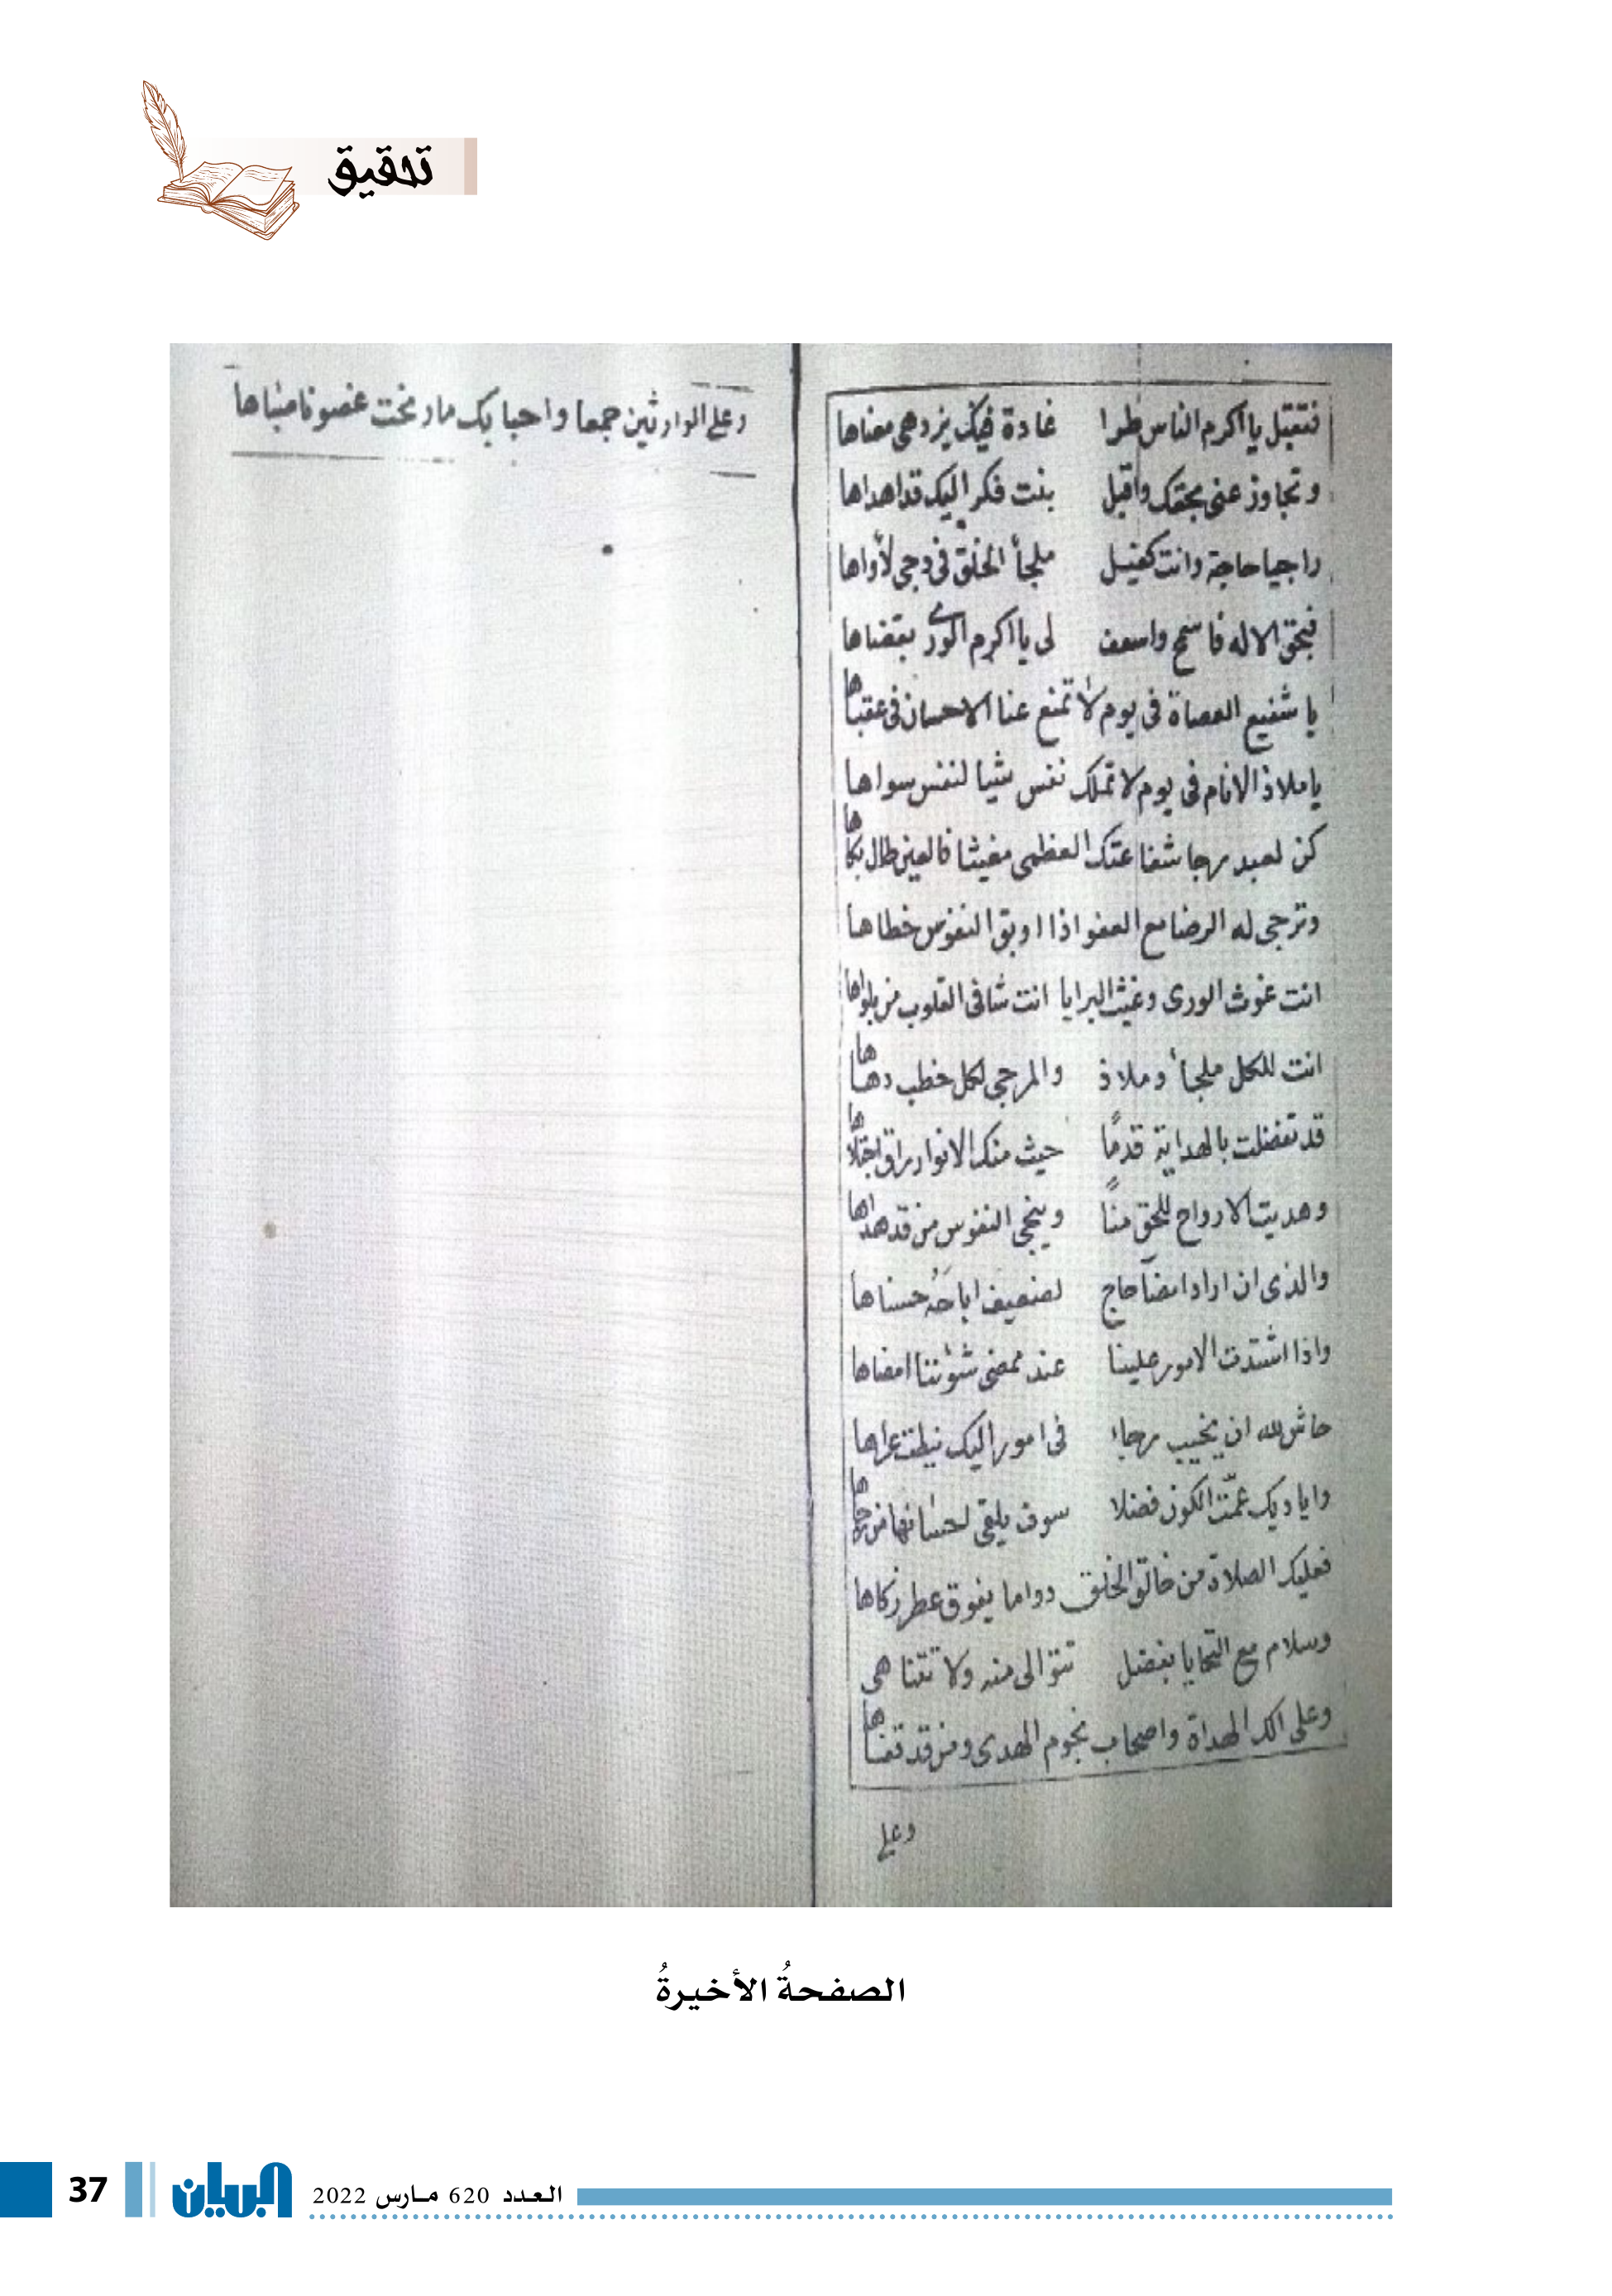 تحقيق
فتقبل يا اكرم الناس طرا غادة فيك يزدهي معناها
وتجاوز عني بحقك واقبل بنت فكر اليك قد اهداها
راجيا حاجة وانت كفيل ملجأ الخلق في دجى لأواها
فبحق الاله فاسمح واسعف لي يا اكرم الورى بقضاها
يا شفيع العصاة في يوم لا تمنع عنا الاحسان في عقباها
يا ملاذ الانام في يوم لا تملك نفس شيا لنفس سواها
كن لعبد رجا شفاعتك العظمى مغيثا فالعين طال بكاها
وترجى له الرضا مع العفو اذا اوبق النفوس خطاها
انت غوث الورى وغيث البرايا انت شافي القلوب من بلواها
انت للكل ملجأ وملاذ والمرجى لكل خطب دهاها
قد تفضلت بالهداية قدمًا حيث منك الانوار راق اجتلاها
وهديت الارواح للحق منًا وينجي النفوس من قد هداها
والذي ان اراد امضآ حاج لضعيف اباحه حسناها
واذا اشتدت الامور علينا عند ممضى شؤننا امضاها
حاش لله ان يخيب رجاء في امور اليك نيطت عراها
واياديك عمّت الكون فضلا سوف يلقى من
فعليك الصلاة من خالق الخلق دواما يفوق عطر زكاها
وسلام مع التحايا بفضل تتوالى منه ولا تتناهى
وعلى الك الهداة واصحاب نجوم الهدى ومن قد قفاها
وعلى
وعلى الوارثين جمعا واحبابك ما رنحت غصونا صباها
الصفحةُ الأخيرةُ
37 البيان العدد 620 مارس 2022